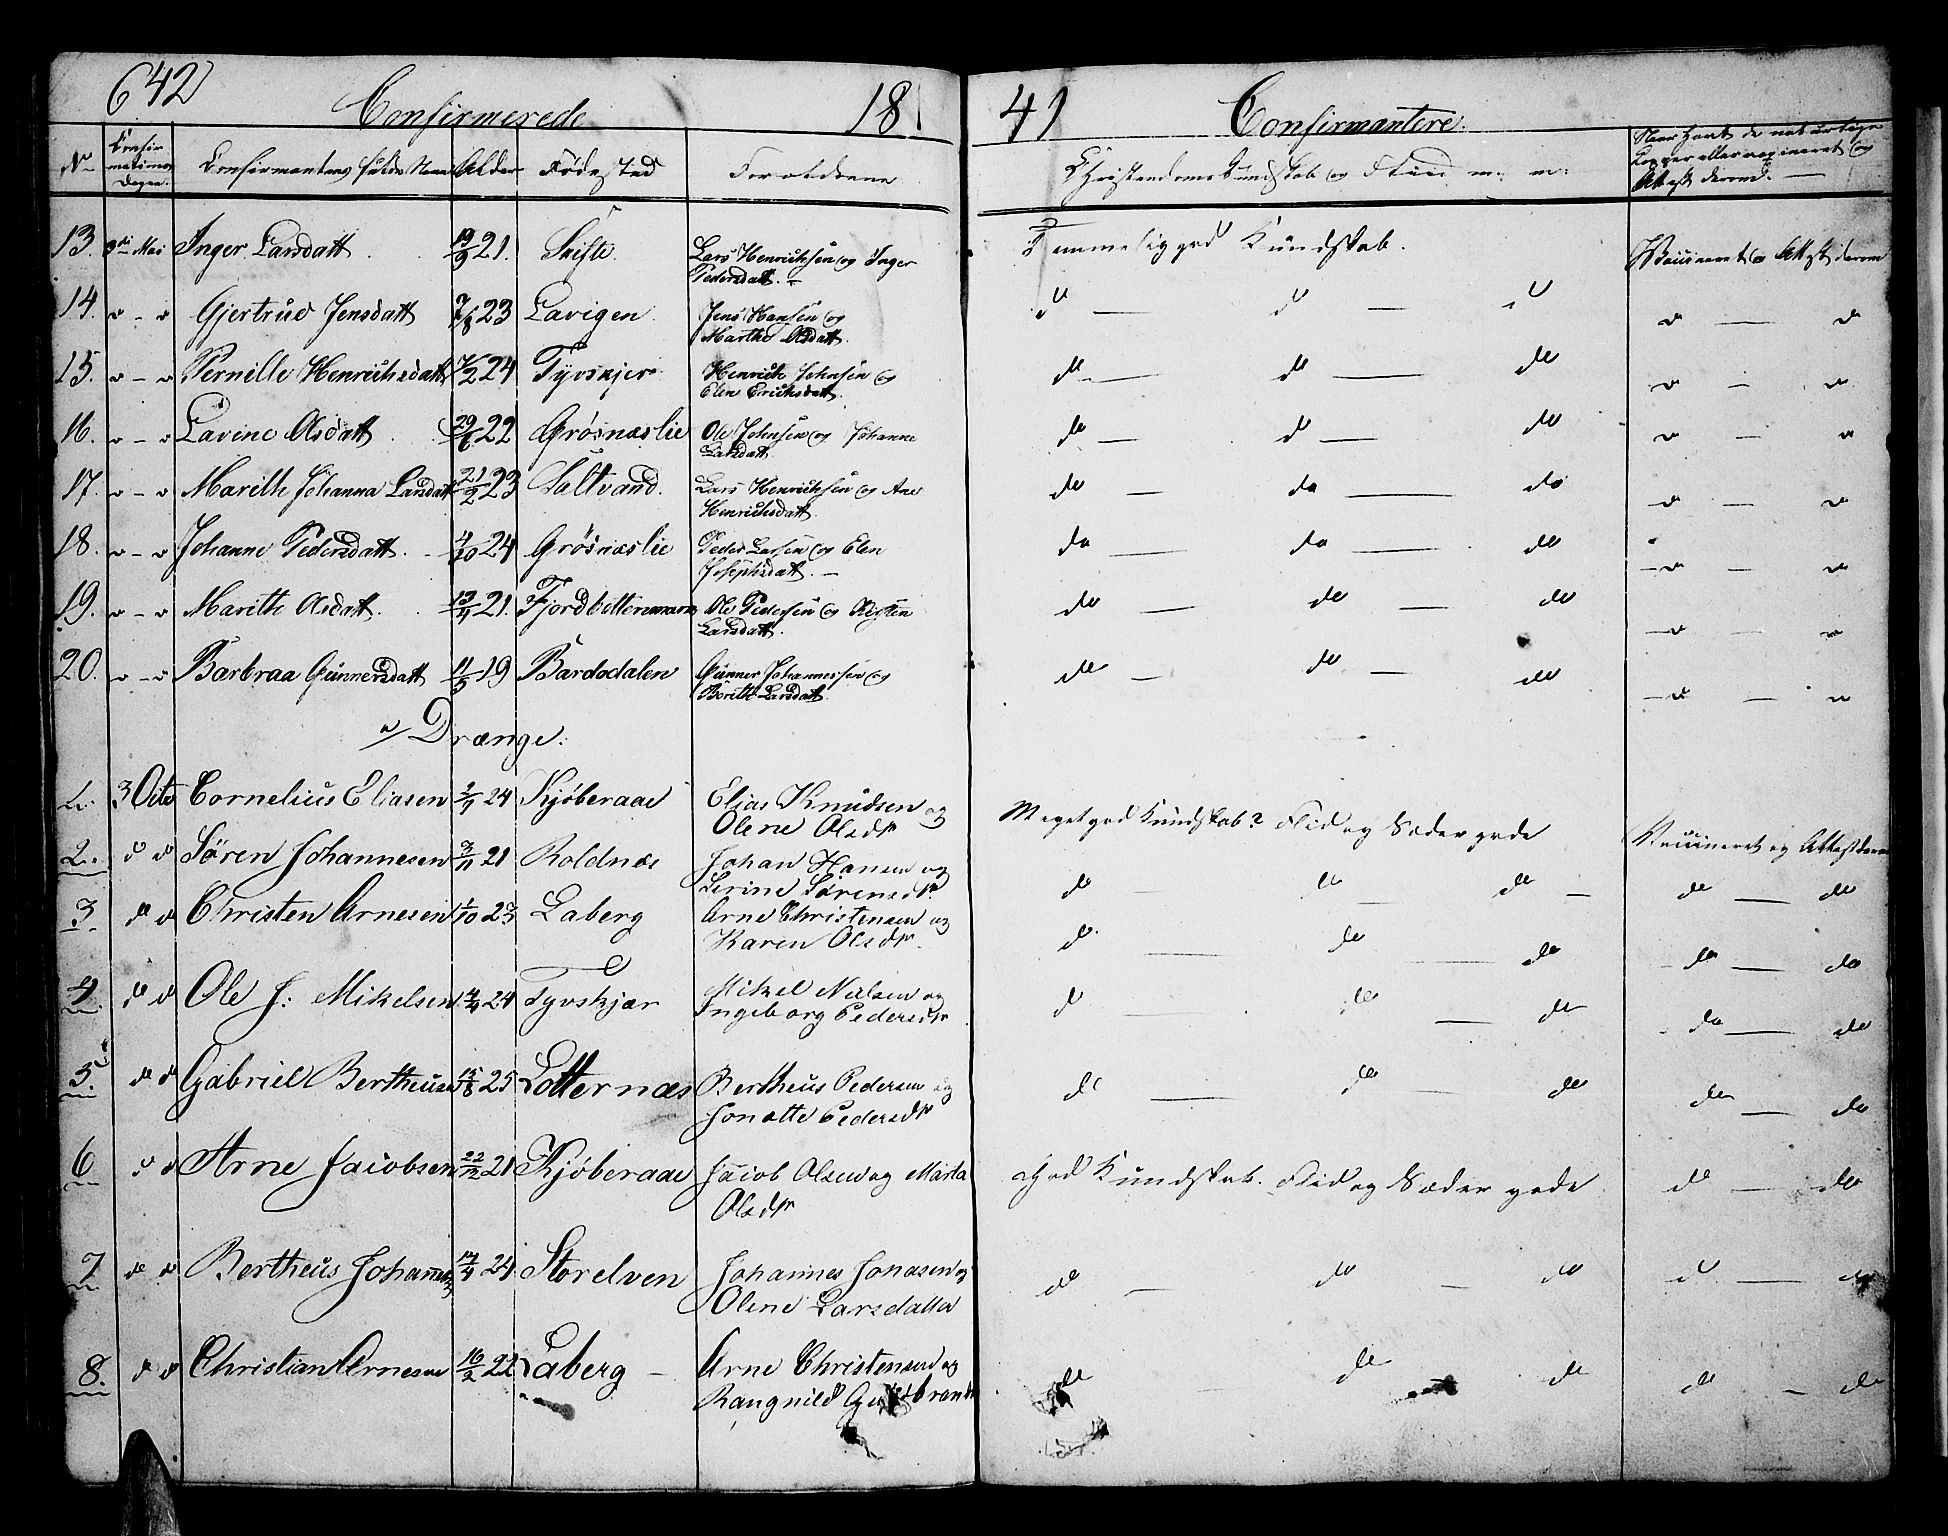 642
Confirmerede 18
41 Confirmantere.
No Confirmations Dagen. Confirmantens fulde Navn Alder Fødested Forældrene
Christendoms Kundskab og Flid m: m:
Naar havt de naturlige
Kopper eller vaccineret og
Attest derom.
13. 3die Mai Inger Larsdatt. 19/9 21. Skifte. Lars Henrichsen og Inger
Pedersdatt.
Temmelig god Kundskab. Vaccineret og Attest derom
14. " - " Gjertrud Jensdatt 7/8 23 Lavigen. Jens Hansen og
Marthe Olsdatt.
do — do — do " — "
15. " - " Pernille Henrichsdatt 24 Tyvskjer Henrich Johnsen og
Elen Erichsdatt.
do — do — do " — "
16. " - " Lavine Olsdatt 29/6 22 Grøsnæslie Ole Johnsen og Johanne
Larsdatt.
do — do — do " — "
17. " - " Marith Johanna Larsdatt 21/2 23 Saltvand. Lars Henrichsen og Ane
Henrichsdatt.
do — do — do " — "
18. " - " Johanne Pedersdatt. 4/10 24 Grøsnæslie Peder Larsen og Elen
Josephsdatt. —
do — do — do " — "
19. " - " Marith Olsdatt. 13/11 21. Fjordbotten Ole Pedersen og
Larsdatt.
do — do — do " — "
20. " - " Barbraa Gunnersdatt 11/5 19 Bardodalen Gunner Johannessen og
Berith Larsdatt.
do — do — do " — "
a/ Drænge:
1. 3 Octo Cornelius Eliasen 24 Kjøberaae Elias Knudsen og
Olene Olsdr
Meget god Kundskab. Flid og Sæder gode Vaccineret og Attest derom
2. do do Søren Johannesen 3/11 21 Roldnæs Johan Hansen og
Serine Sørensdr.
do — do — do — do — do
3 do do Christen Arnesen 1/10 23 Laberg Arne Christensen og
Karen Olsdr.
do — do — do do — do
4. do do Ole J: Mikelsen 24 Tyvskjær Mikel Nielsen og
Ingeborg Pedersdr
do do — do do — do
5. do do Gabriel Bertheuse 15/8 25 Lotternæs Bertheus Pedersen og
Jonette Pedersdr
do — do — do do — do
6 do do Arne Jacobsen 22/12 21 Kjøberaae Jacob Olsen og Marta
Olsdr
God Kundskab. Flid og Sæder gode do — do
7 do do Bertheus Johannes 17/4 24 Storelven Johannes Jonasen og
Olene Larsdatter
do — do — do do — do
8. do do Christian Arnesen 16/2 22 Laberg — Arne Christensen og
Rangnild Gulbrands
do — do do do — do